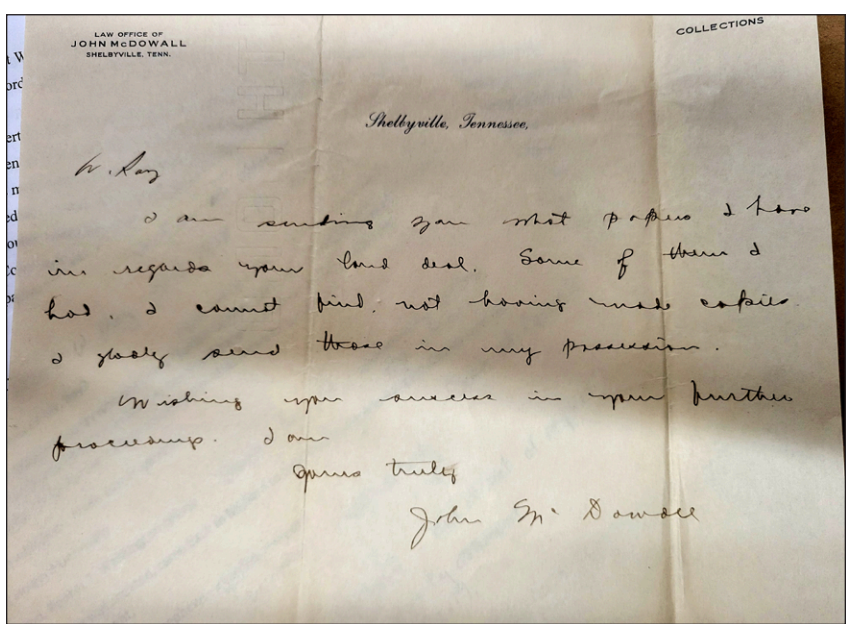 LAW OFFICE OF
JOHN McDOWALL
SHELBYVILLE, TENN.
COLLECTIONS
Shelbyville, Tennessee,
W. Ray
I am sending you what papers I have
in regards your land deal. Some of them I
had, I cannot find, not having made copies.
I gladly send those in my possession.
Wishing you success in your further
proceedings. I am
yours truly
John McDowall